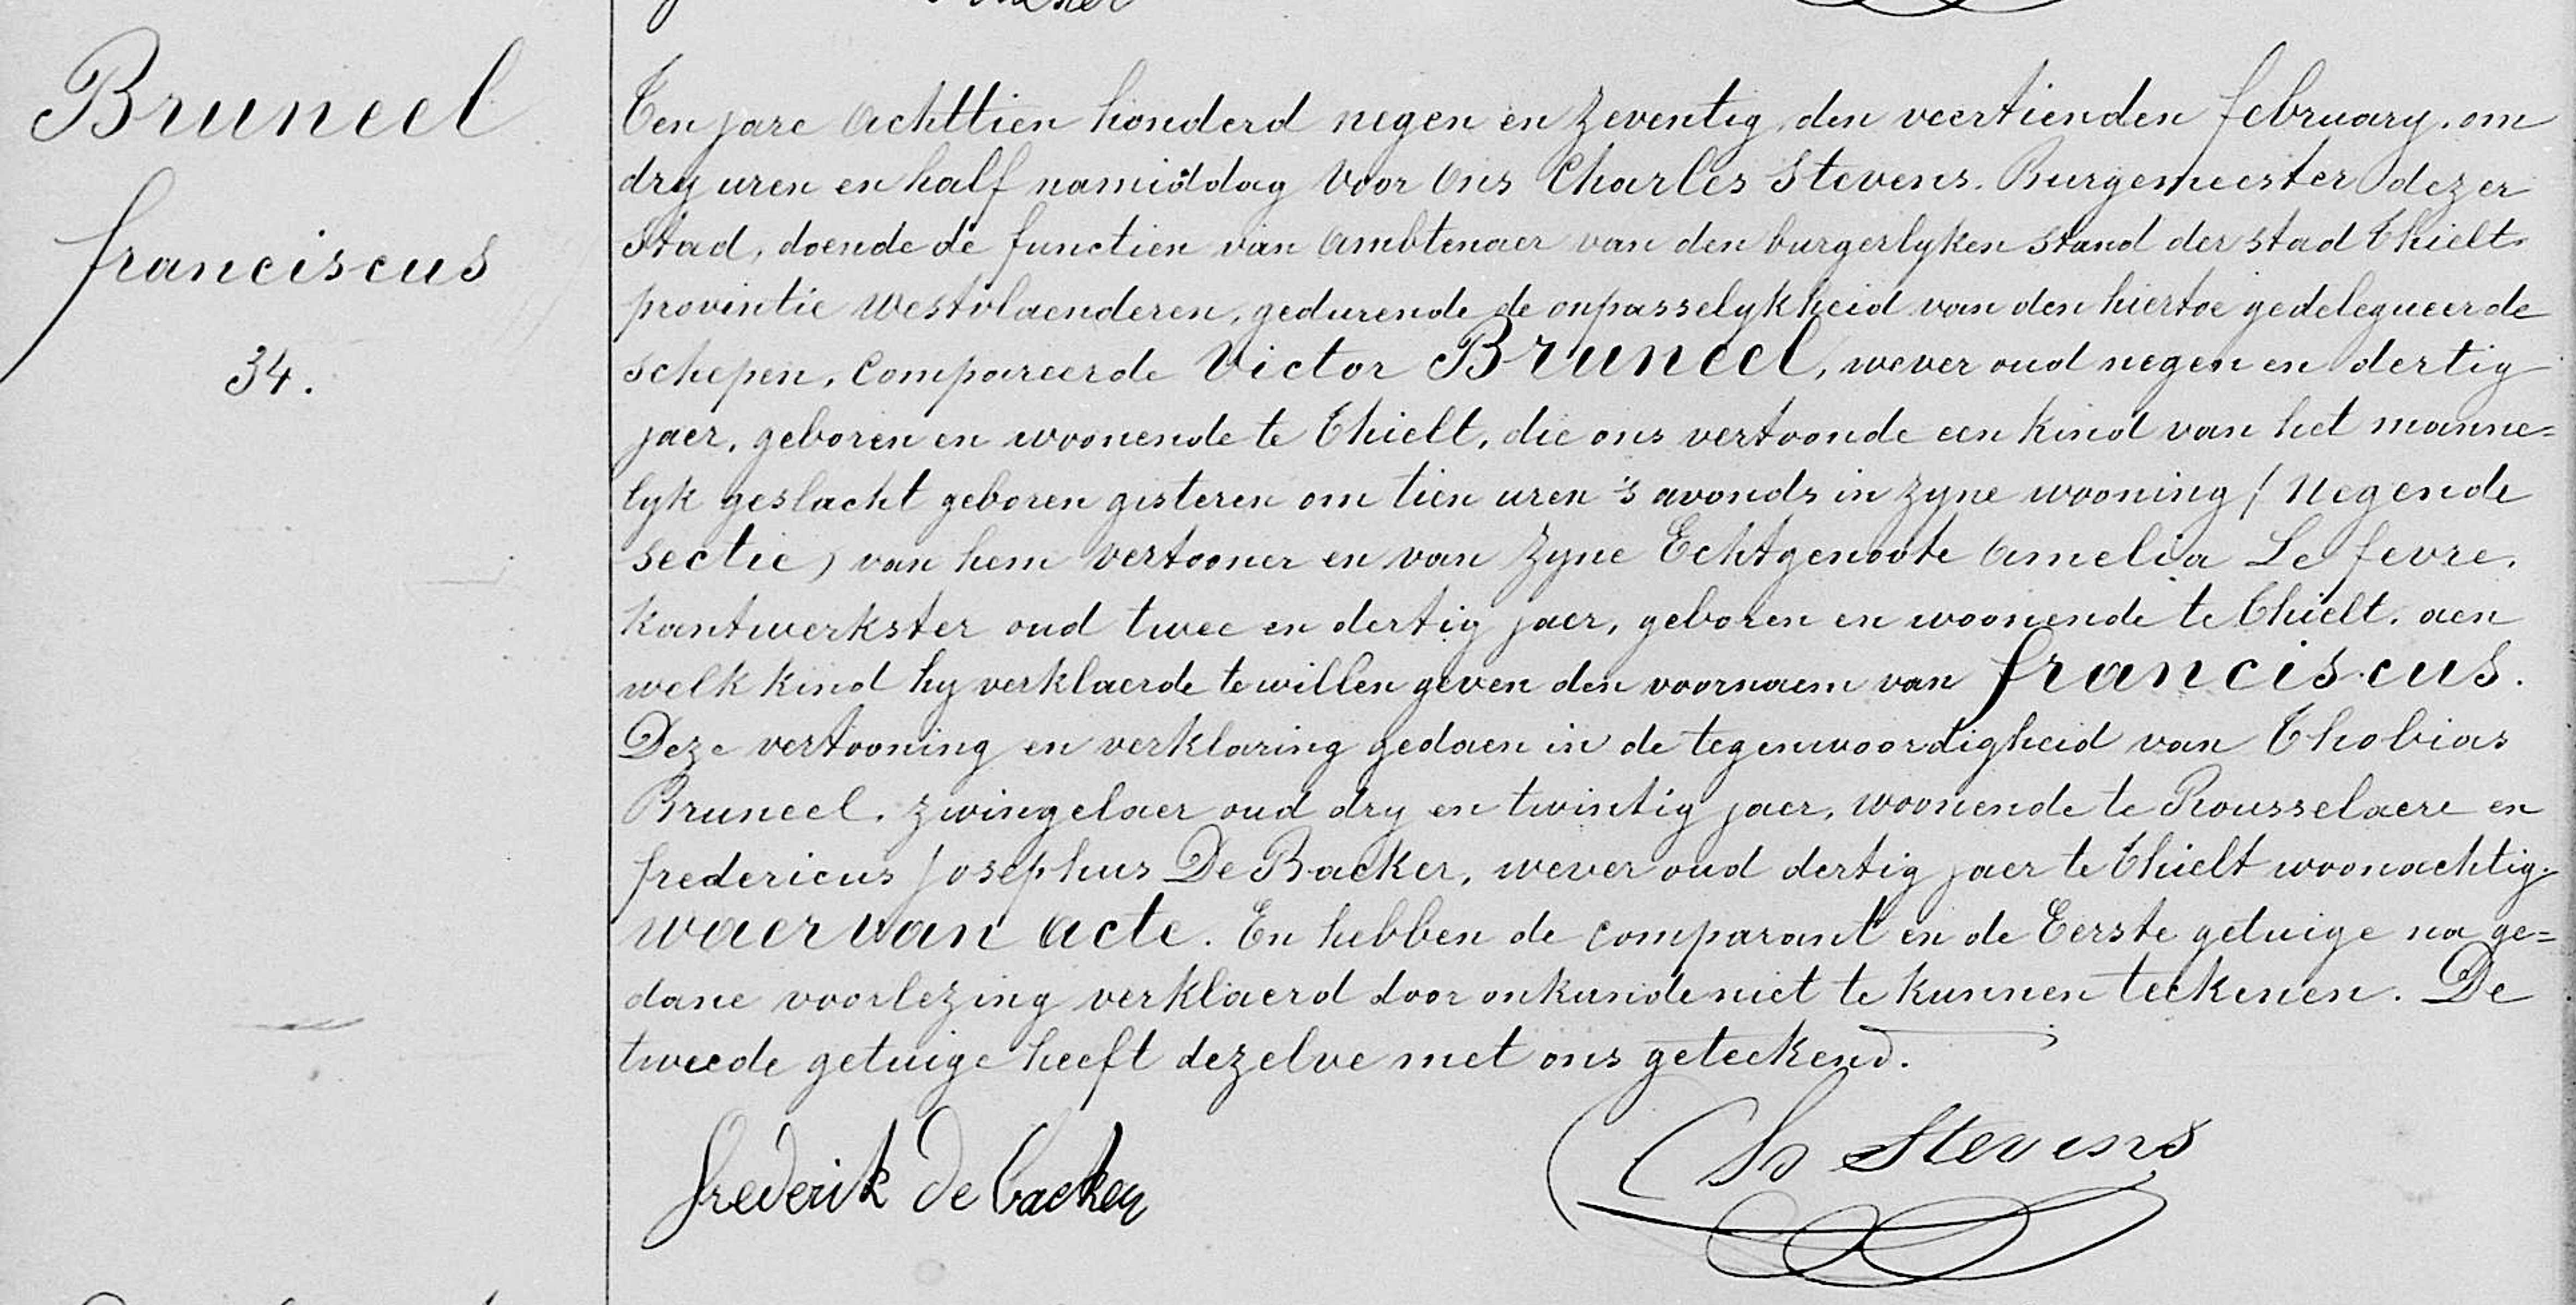 Bruneel
franciscus
34.
Ten jare achttien honderd negen en zeventig, den veertienden february, om
dry uren en half namiddag voor ons Charles Stevens. Burgemeester dezer
Stad, doende de functien van ambtenaer van den burgerlyken stand der stad Thielt
provintie Westvlaenderen, gedurende de onpasselykheid van den hiertoe gedelegueerde
schepen, Compareerde Victor Bruneel, wever oud negen en dertig
jaer, geboren en woonende te Thielt, die ons vertoonde een kind van het manne=
lyk geslacht geboren gisteren om tien uren 's avonds in zyne wooning / negende
sectie) van hem vertooner en van zyne Echtgenoote Amelia Le fevre,
Kantwerkster oud twee en dertig jaer, geboren en woonende te Thielt. aen
welk kind hy verklaerde te willen geven den voornaem van franciscus.
Deze vertooning en verklaring gedaen in de tegenwoordigheid van Thobias
Bruneel, zwingelaer oud dry en twintig jaer, woonende te Rousselaere en
fredericus Josephus De Backer, wever oud dertig jaer te Thielt woonachtig.
waervan acte. En hebben de comparant en de Eerste getuige na ge=
dane voorlezing verklaerd door onkunde niet te kunnen teekenen. De
tweede getuige heeft dezelve met ons geteekend.
frederik de backer
Ch Stevens